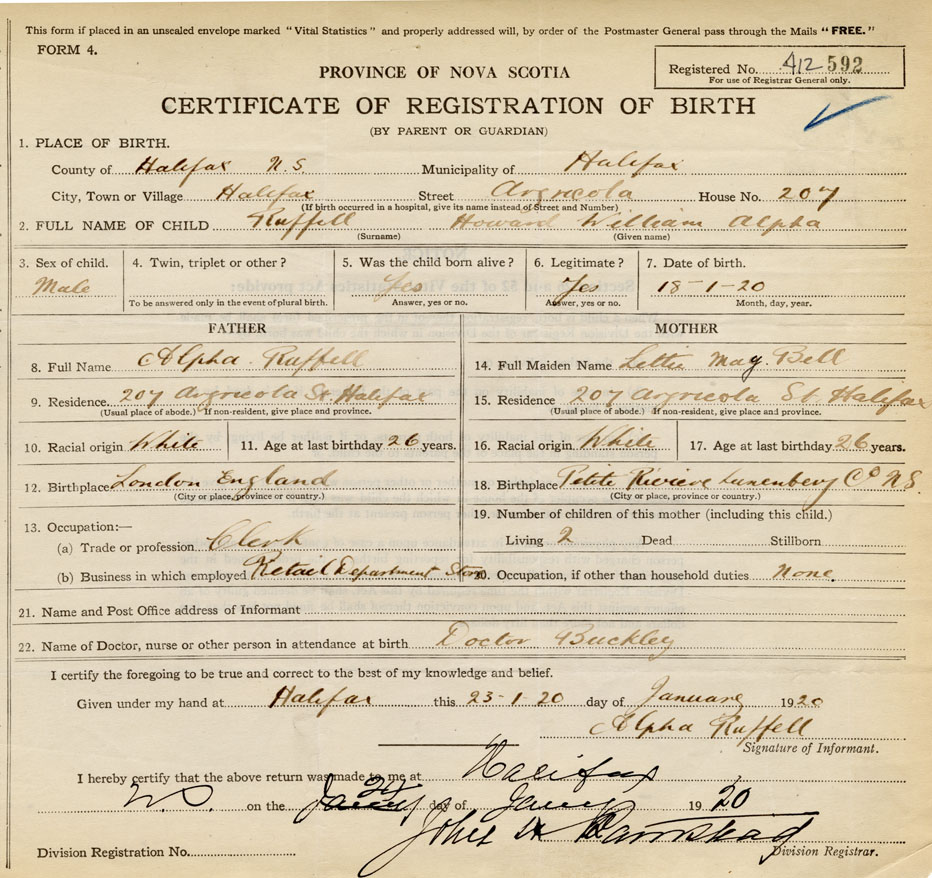 This form if placed in an unsealed envelope marked "Vital Statistics" and properly addressed will, by order of the Postmaster General pass through the Mails "FREE."
FORM 4.
PROVINCE OF NOVA SCOTIA
Registered No. 412 592
For use of Registrar General only.
CERTIFICATE OF REGISTRATION OF BIRTH
(BY PARENT OR GUARDIAN)
1. PLACE OF BIRTH.
County of Halifax N.S. Municipality of Halifax
City, Town or Village Halifax Street Argricola House No. 207
(If birth occurred in a hospital, give its name instead of Street and Number)
2. FULL NAME OF CHILD Ruffell Howard William Alpha
(Surname) (Given name)
3. Sex of child. 4. Twin, triplet or other? 5. Was the child born alive? 6. Legitimate? 7. Date of birth.
Male Yes Yes 18-1-20
To be answered only in the event of plural birth. Answer, yes or no. Answer, yes or no. Month, day, year.
FATHER MOTHER
8. Full Name Alpha Ruffell 14. Full Maiden Name Lettie May Bell
9. Residence 207 Argricola St. Halifax 15. Residence 207 Argricola St. Halifax
(Usual place of abode.) If non-resident, give place and province. (Usual place of abode.) If non-resident, give place and province.
10. Racial origin White 11. Age at last birthday 26 years. 16. Racial origin White 17. Age at last birthday 26 years.
12. Birthplace London England 18. Birthplace Petite Riviere Lunenberg Co N.S.
(City or place, province or country.) (City or place, province or country.)
13. Occupation:— 19. Number of children of this mother (including this child.)
(a) Trade or profession Clerk Living 2 Dead Stillborn
(b) Business in which employed Retail Department Store 20. Occupation, if other than household duties None.
21. Name and Post Office address of Informant
22. Name of Doctor, nurse or other person in attendance at birth Doctor Buckley
I certify the foregoing to be true and correct to the best of my knowledge and belief.
Given under my hand at Halifax this 23-1-20 day of January 1920
Alpha Ruffell
Signature of Informant.
I hereby certify that the above return was made to me at Halifax
N.S. on the 24 day of Jany 1920
John H
Division Registration No. Division Registrar.